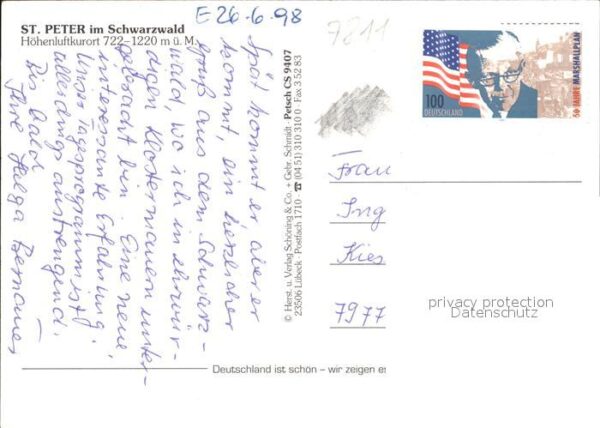 ST. PETER im Schwarzwald
Höhenluftkurort 722–1220 m ü. M.
E 26.6.98
7211
Spät kommt er aber er
kommt, ein herzlicher
Gruß aus dem Schwarz-
wald, wo ich in ehrwür-
digen Klostermauern unter-
gebracht bin. Eine neue
interessante Erfahrung!
Unser Tagesprogramm ist
allerdings anstrengend.
Bis bald
Ihre Helga
© Herst. u. Verlag Schöning & Co. + Gebr. Schmidt · Petsch CS 9407
23506 Lübeck · Postfach 1710 · ☎ (04 51) 310 310 0 · Fax 3 52 83
100
DEUTSCHLAND
50 JAHRE MARSHALLPLAN
Frau
Ing
Kies
7977
privacy protection
Datenschutz
Deutschland ist schön – wir zeigen es